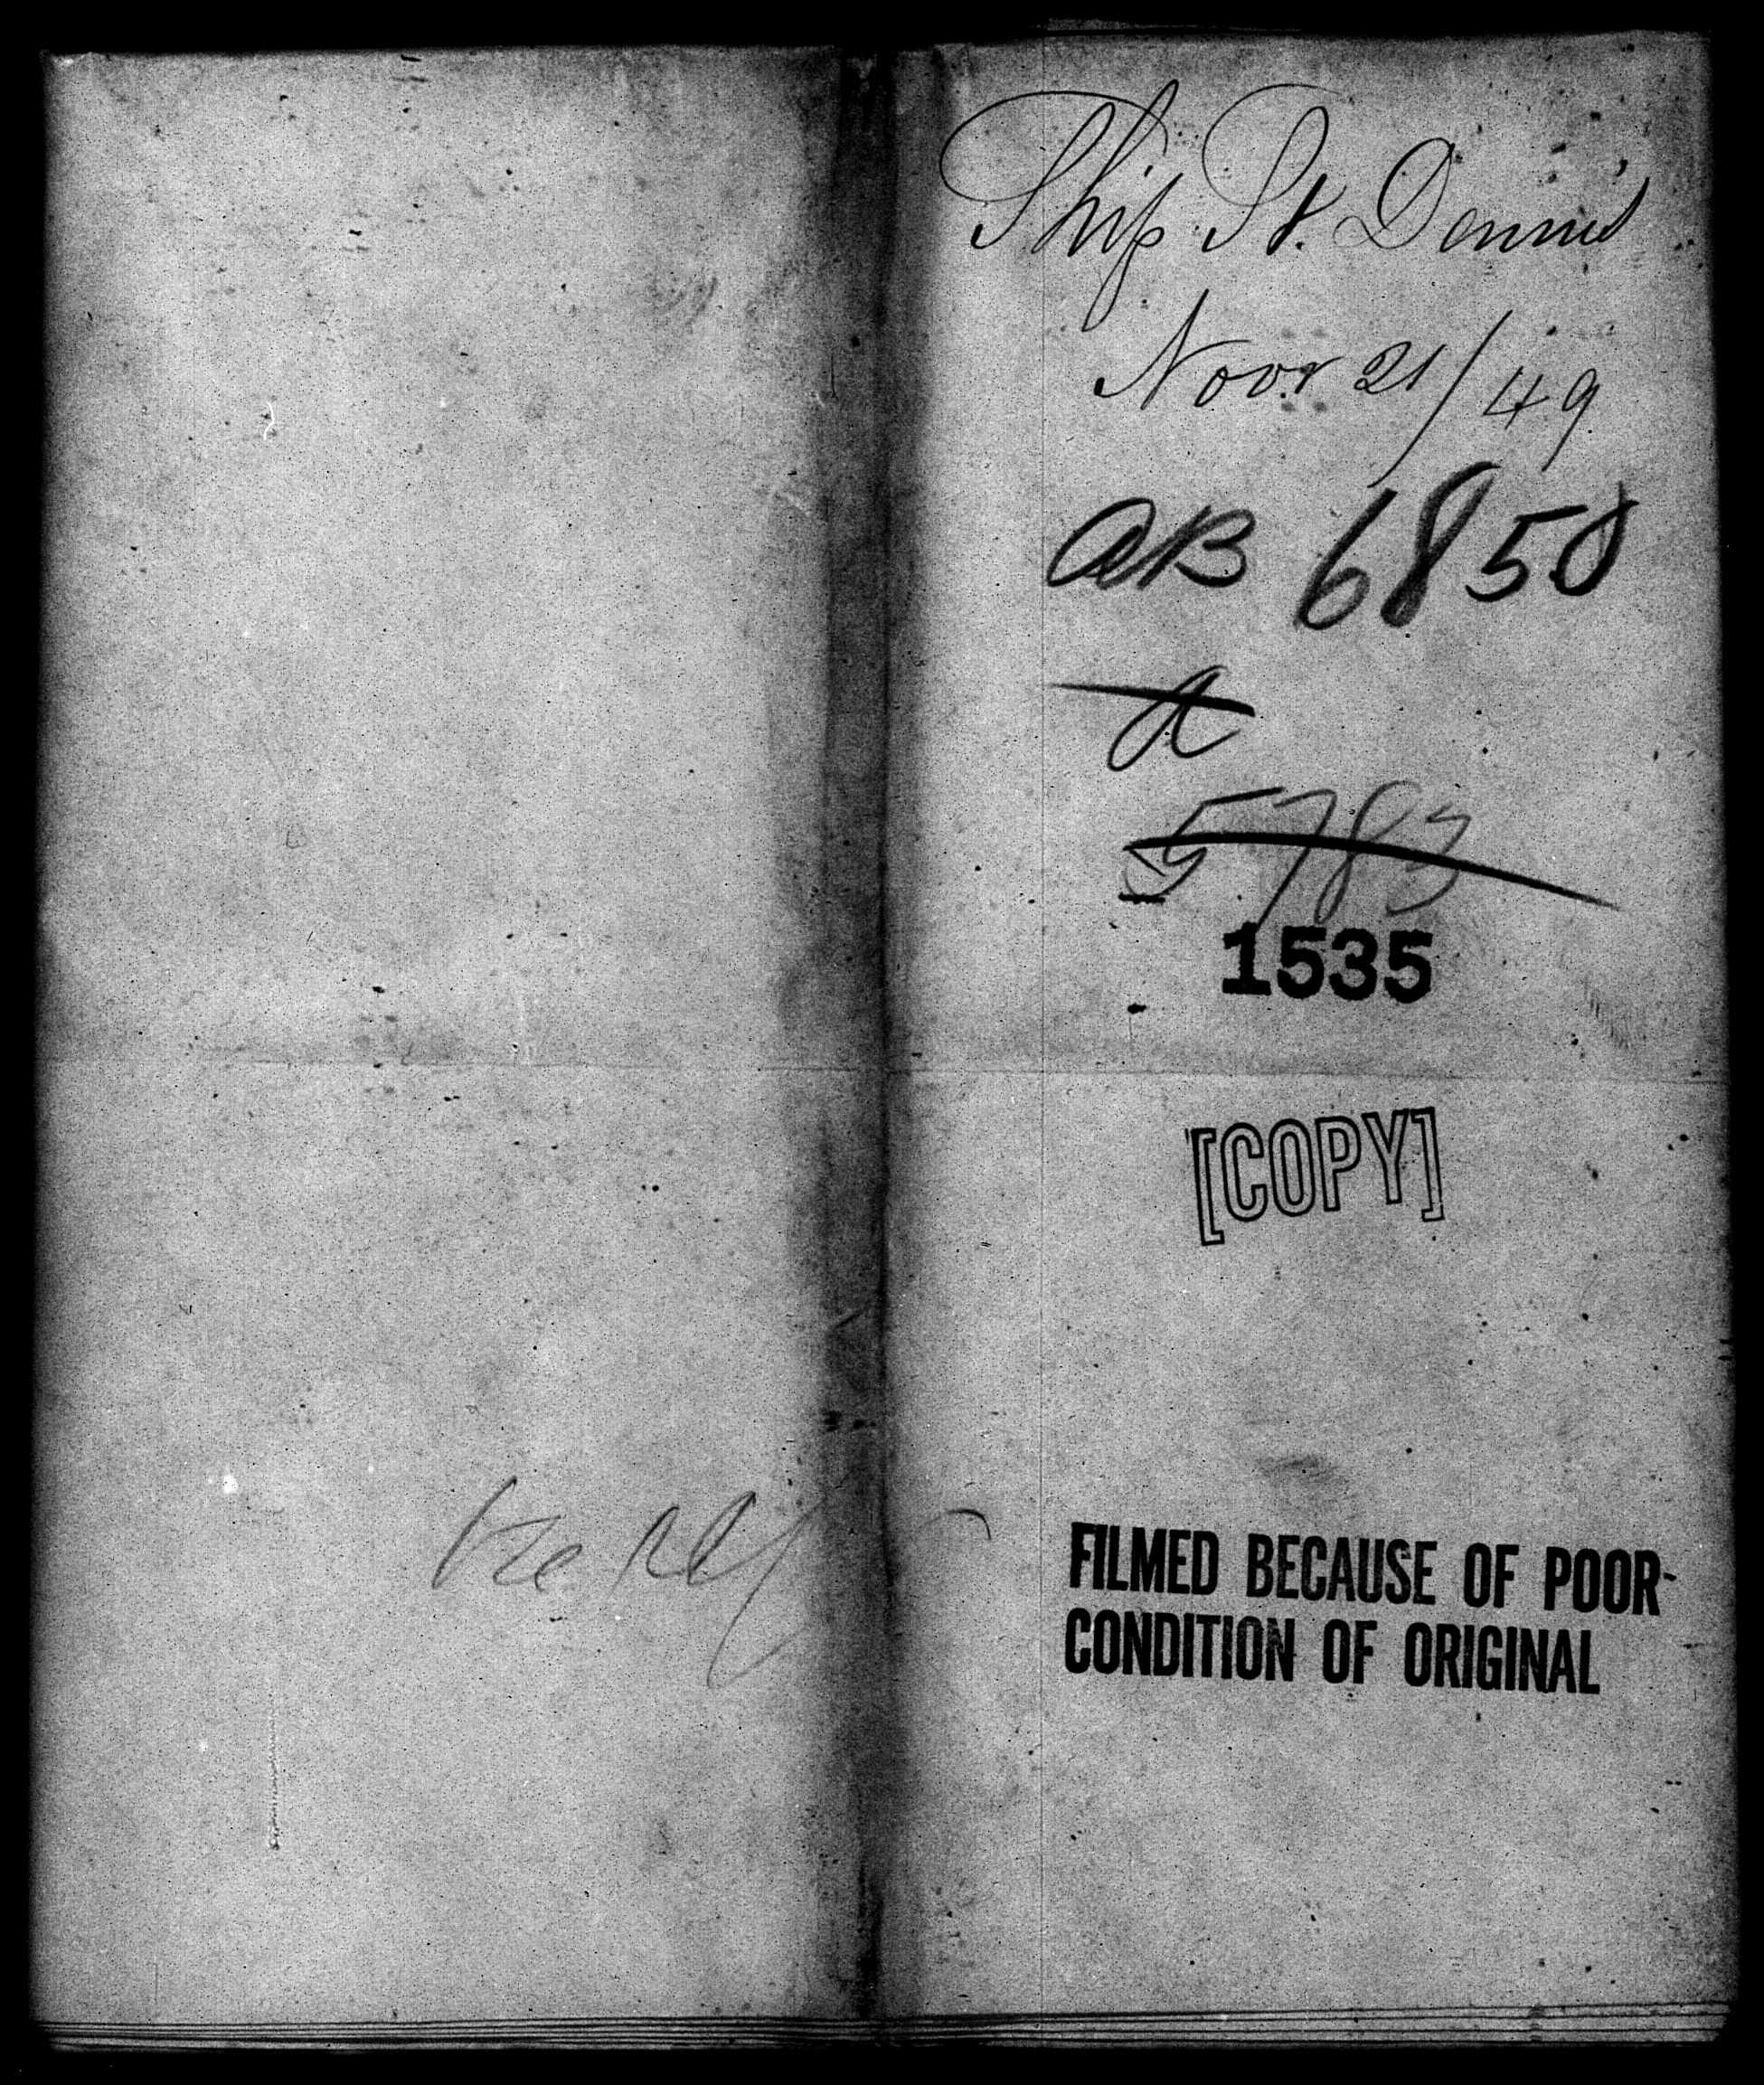 Ship St. Dennis
Novr 21/49
AB 6850
A
5783
1535
[COPY]
FILMED BECAUSE OF POOR
CONDITION OF ORIGINAL